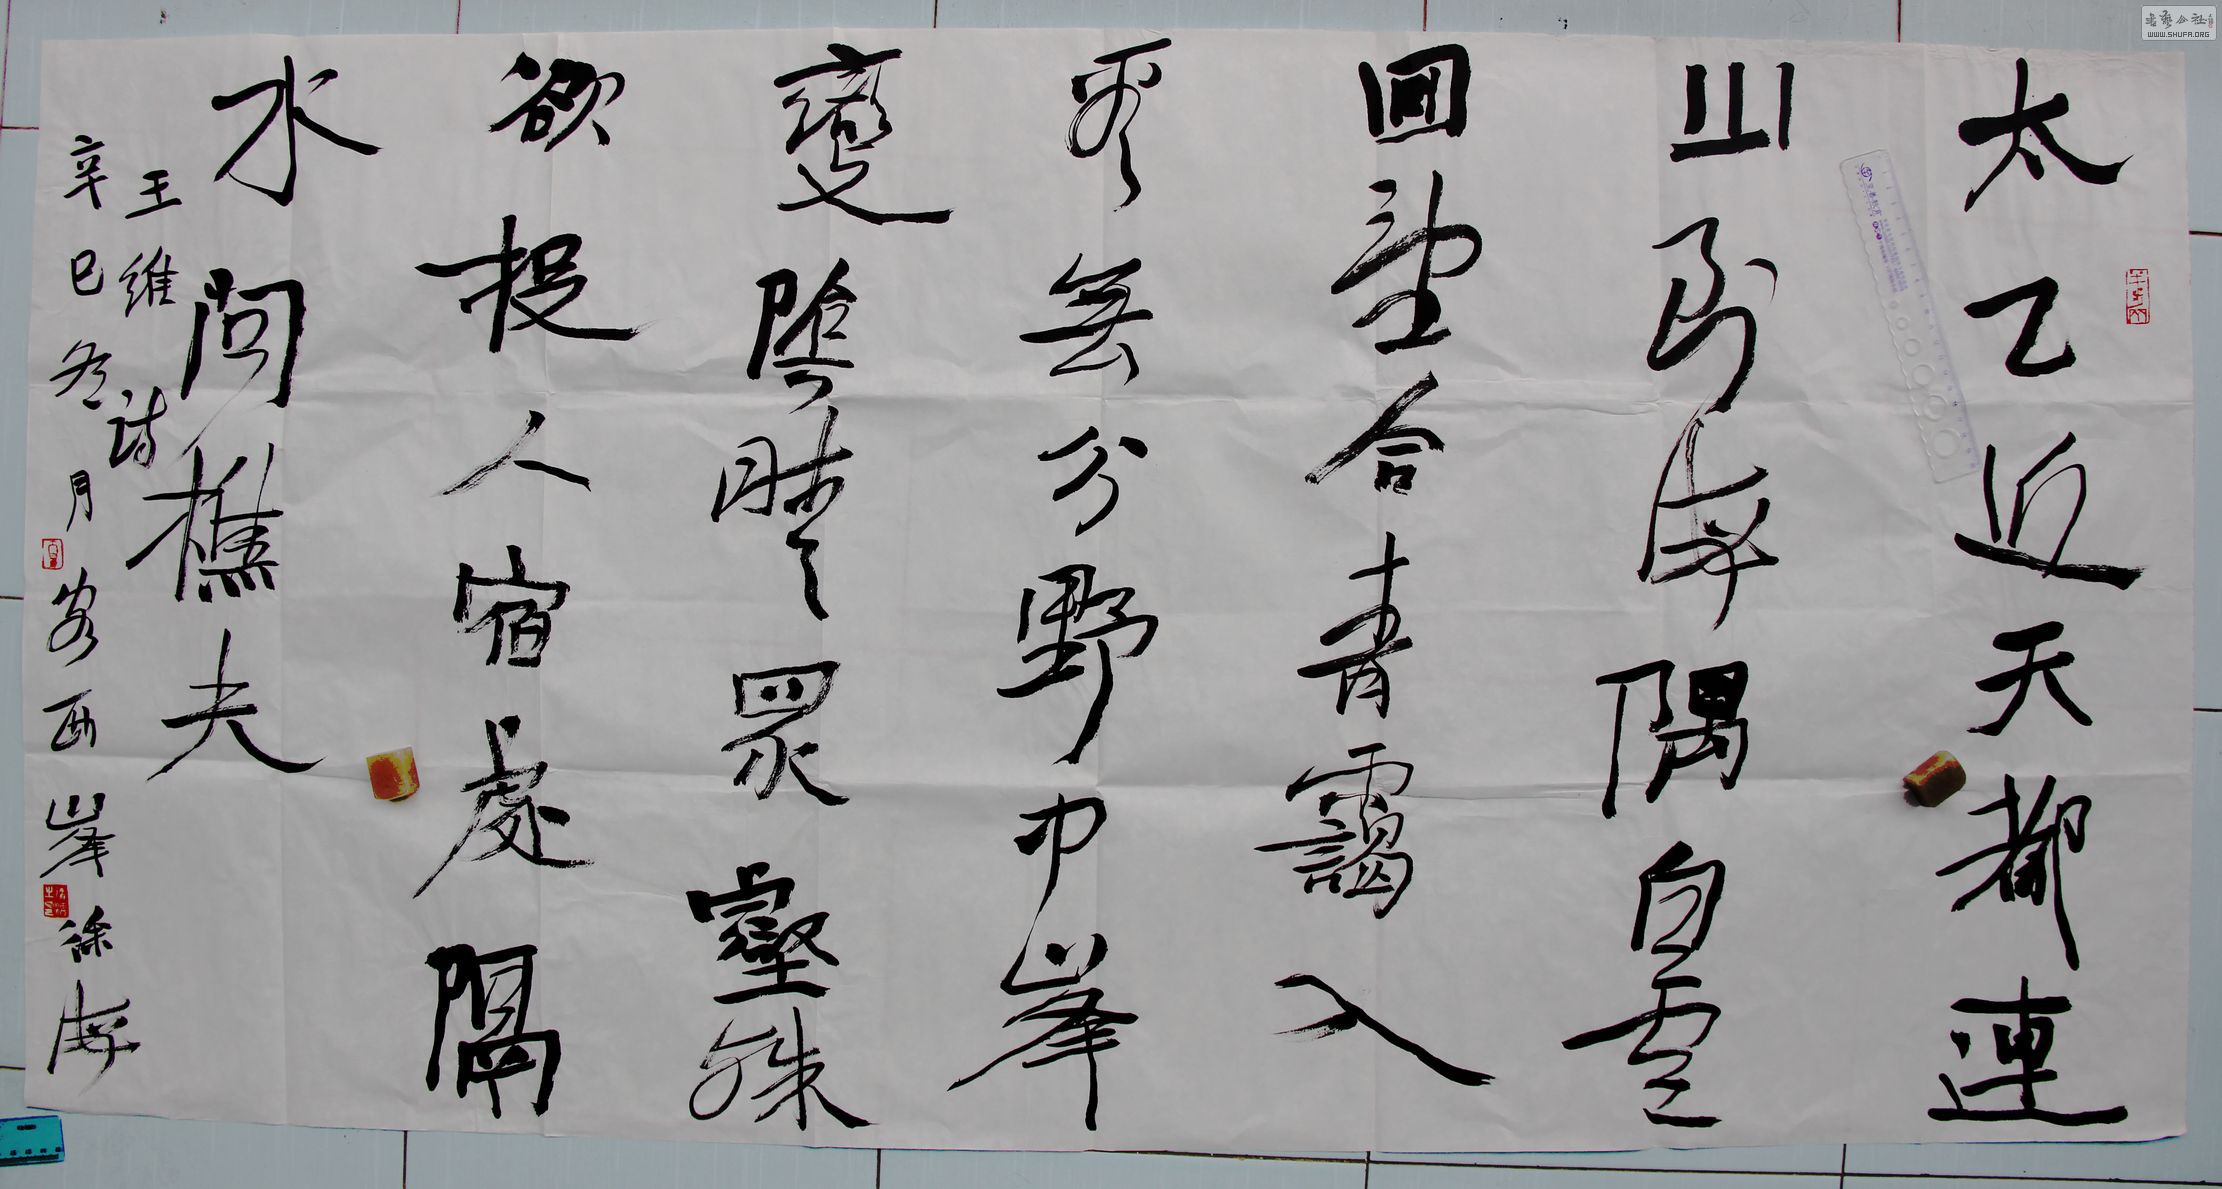 太乙近天都連
山到海隅白雲
回望合青靄入
看無分野中峯
變陰晴眾壑殊
欲投人宿處隔
水問樵夫
王維詩
辛巳冬月客西峯徐海
書藝公社
WWW.SHUFA.ORG